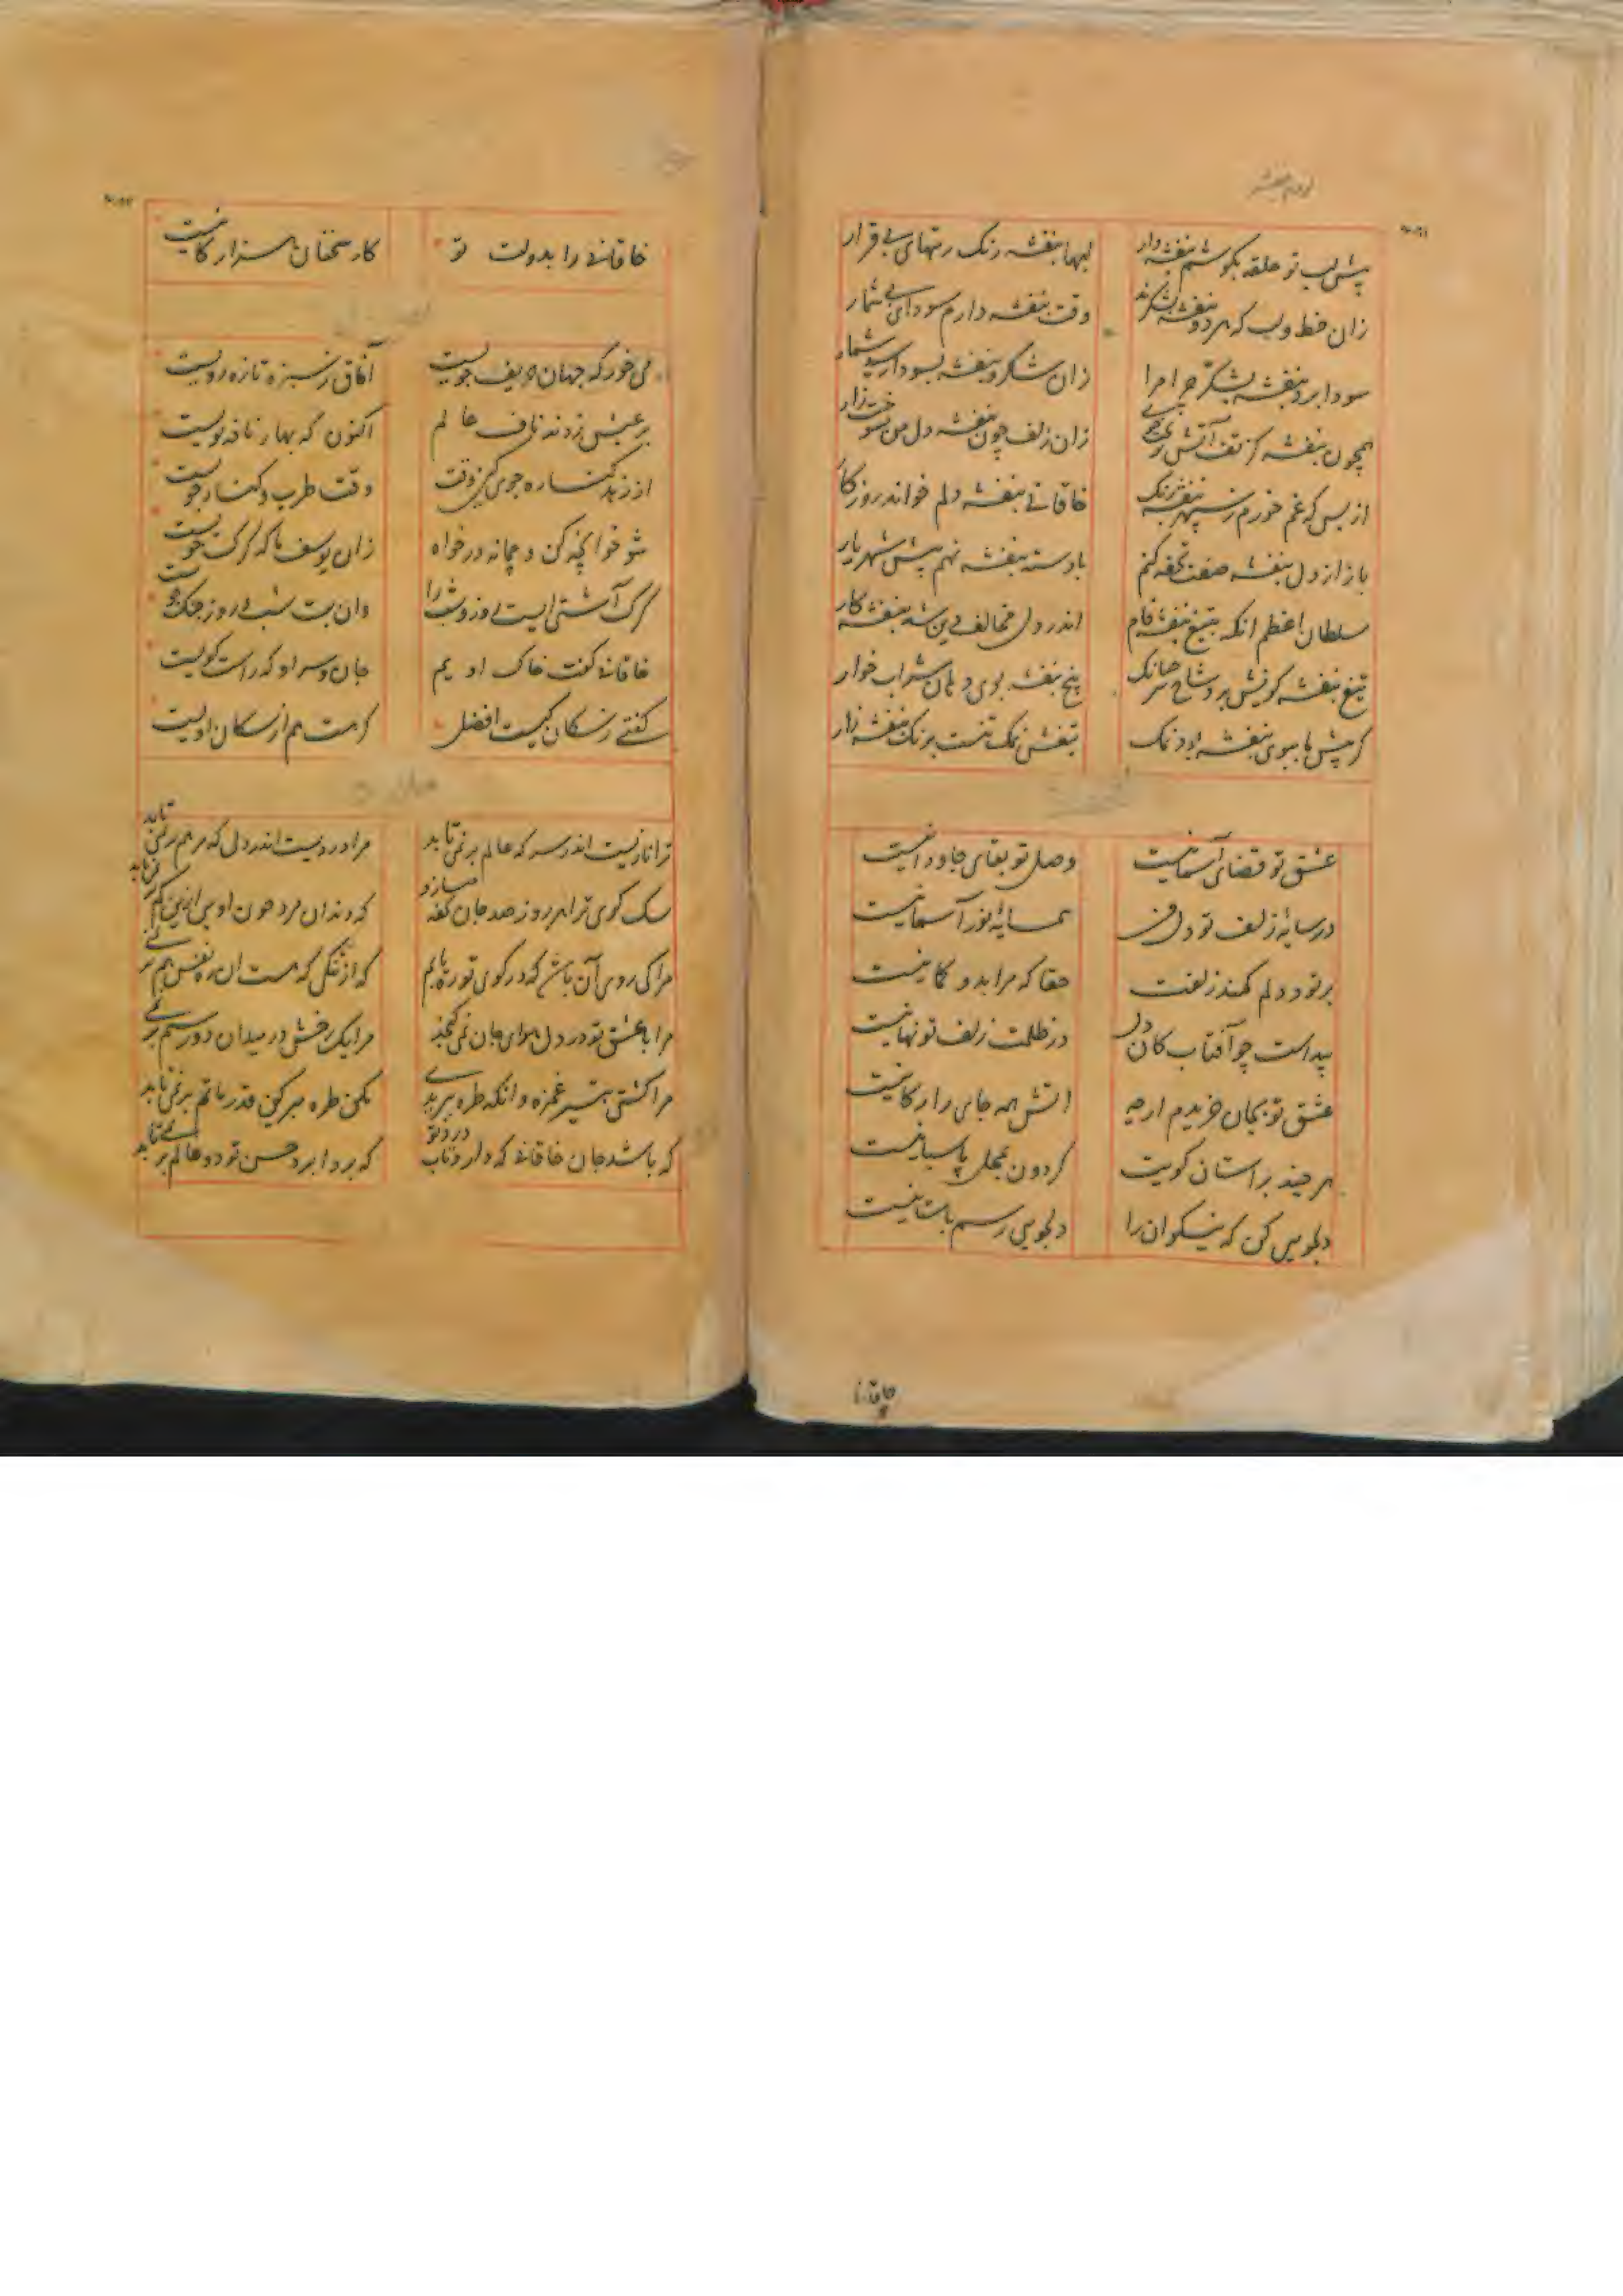 پیش لب تو حلقه بکوشم بنفشه دار
لبها بنفشه رنک رتبهای بی قرار
زان خط و لب که هر دو بنفشه بشکرند
وقت بنفشه دارم سودای بی شمار
سودا برد بنفشه بشکر چرا مرا
زان شکر و بنفشه بسودا رسید شمار
همچون بنفشه کز تف آتش
زان زلف چون بنفشه دل من بسوخت زار
از بس که غم خورم ز سپهر بنفشه رنک
خاقانی بنفشه دلم خواند روزکار
باز از دل بنفشه صفت تحفه کنم
با دسته بنفشه نهم پیش شهریار
سلطان اعظم انکه بتیغ بنفشه فام
اندر دل مخالف دین شد بنفشه کار
تیغ بنفشه کونش برد شاخ شر چنانک
بیخ بنفشه بوی دهان شراب خوار
کر پیش ما ببوی بنفشه بود نمک
تیغش نمک تنست برنک بنفشه زار
عشق تو قضای آسمانیست
وصل تو بقای جاودانیست
در سایهٔ زلف تو دل من
همسایهٔ نور آسمانیست
بر تو دلم کمند زلفت
حقا که مرا بدو کمانیست
پیداست چو آفتاب کان دل
در ظلمت زلف تو نهانیست
عشق تو بجان خریدم ارچه
اتش همه جای رایکانیست
هر چند بر استان کویت
کردون بمحل پاسبانیست
دلجویی کن که نیکوان را
دلجویی رسم باستانیست
خاقانی را بدولت تو
کار سخنان هزار کانیست
می خور که جهان حریف جویست
آفاق ز سبزه تازه رویست
بر عیش زدند ناف عالم
اکنون که بهار نافه بویست
از زهد کناره جوی کین وقت
وقت طرب و کنار جویست
شو خوانچه کن و چمانه در خواه
زان یوسف ما که کرک خویست
کرک آشتی ایست روز و شب را
وان بت شب و روز جنک جوست
خاقانی کفت خاک اویم
جان و سر او که راست کویست
کفتی ز سکان کیست افضل
کر هست هم از سکان اویست
ترا نازیست اندر سر که عالم بر نمی تابد
مرا دردیست اندر دل که مرهم بر نمی تابد
سک کوی ترا هر روز صد جان تحفه میسازد
که دندان مزد چون اویی ازین کم بر نمی تابد
مرا کی روی آن باشد که در کوی تو ره یابم
که از تنکی که هست ان ره نفس هم بر نمی تابد
مرا با عشق تو در دل هوای جان نمی کنجد
مرا یک رخش در میدان دو رستم بر نمی تابد
مرا کشتی بتیر غمزه وانکه طره ببریدی
مکن طره مبر کین قدر ماتم بر نمی تابد
که باشد جان خاقانی که دارد تاب درد تو
که بردابرد حسن تو دو عالم بر نمی تابد